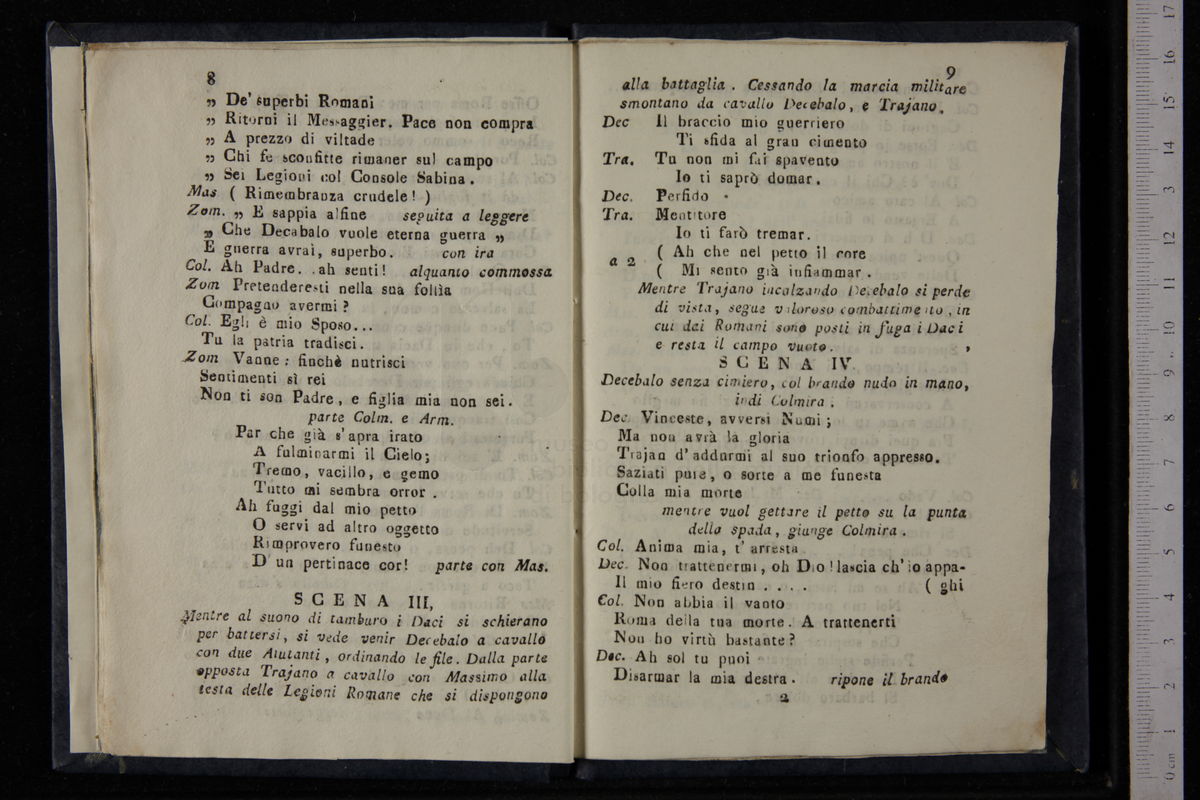 8
„ De' superbi Romani
„ Ritorni il Messaggier. Pace non compra
„ A prezzo di viltade
„ Chi fe sconfitte rimaner sul campo
„ Sei Legioni col Console Sabina.
Mas ( Rimembranza crudele! )
Zom. „ E sappia alfine seguita a leggere
„ Che Decabalo vuole eterna guerra „
E guerra avrai, superbo. con ira
Col. Ah Padre. .ah senti! alquanto commossa
Zom Pretenderesti nella sua follìa
Compagno avermi?
Col. Egli è mio Sposo...
Tu la patria tradisci.
Zom Vanne: finchè nutrisci
Sentimenti sì rei
Non ti son Padre, e figlia mia non sei.
parte Colm. e Arm.
Par che già s'apra irato
A fulminarmi il Cielo;
Tremo, vacillo, e gemo
Tutto mi sembra orror.
Ah fuggi dal mio petto
O servi ad altro oggetto
Rimprovero funesto
D'un pertinace cor! parte con Mas.
SCENA III,
Mentre al suono di tamburo i Daci si schierano
per battersi, si vede venir Decebalo a cavallo
con due Aiutanti, ordinando le file. Dalla parte
opposta Trajano a cavallo con Massimo alla
testa delle Legioni Romane che si dispongono
9
alla battaglia. Cessando la marcia militare
smontano da cavallo Decebalo, e Trajano.
Dec Il braccio mio guerriero
Ti sfida al gran cimento
Tra. Tu non mi fai spavento
Io ti saprò domar.
Dec. Perfido
Tra. Mentitore
Io ti farò tremar.
a 2 ( Ah che nel petto il core
( Mi sento già infiammar.
Mentre Trajano incalzando Decebalo si perde
di vista, segue valoroso combattimento, in
cui dai Romani sono posti in fuga i Daci
e resta il campo vuoto.
SCENA IV.
Decebalo senza cimiero, col brando nudo in mano,
indi Colmira.
Dec Vinceste, avversi Numi;
Ma non avrà la gloria
Trajan d'addurmi al suo trionfo appresso.
Saziati pure, o sorte a me funesta
Colla mia morte
mentre vuol gettare il petto su la punta
della spada, giunge Colmira.
Col. Anima mia, t'arresta
Dec. Non trattenermi, oh Dio! lascia ch'io appa-
Il mio fiero destin . . . . ( ghi
Col. Non abbia il vanto
Roma della tua morte. A trattenerti
Non ho virtù bastante?
Dec. Ah sol tu puoi
Disarmar la mia destra. ripone il brando
2